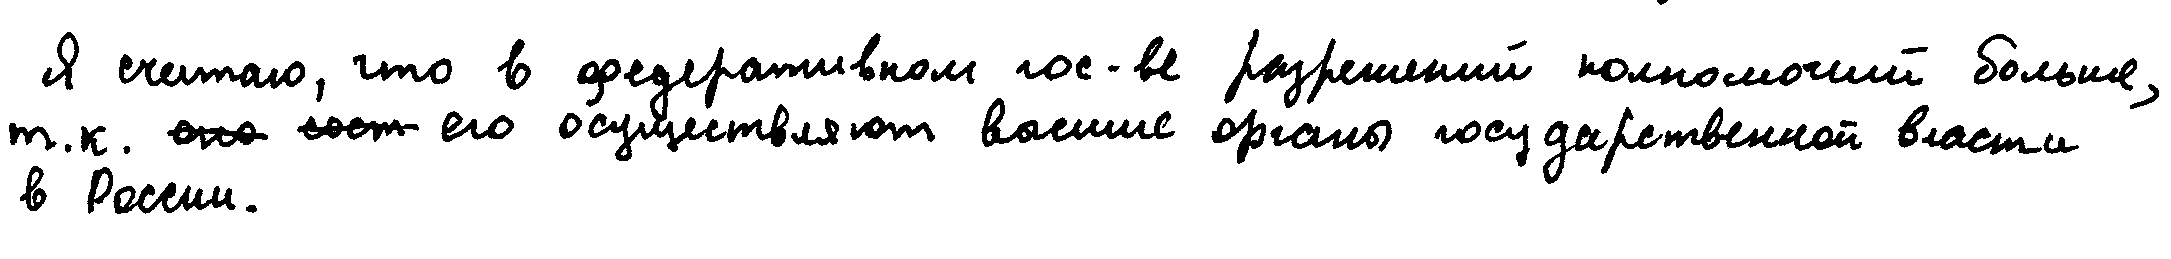 Я считаю, что в федеративном гос-ве разрешений полномочий больше,
т.к. его осуществляют высшие органы государственной власти
в России.